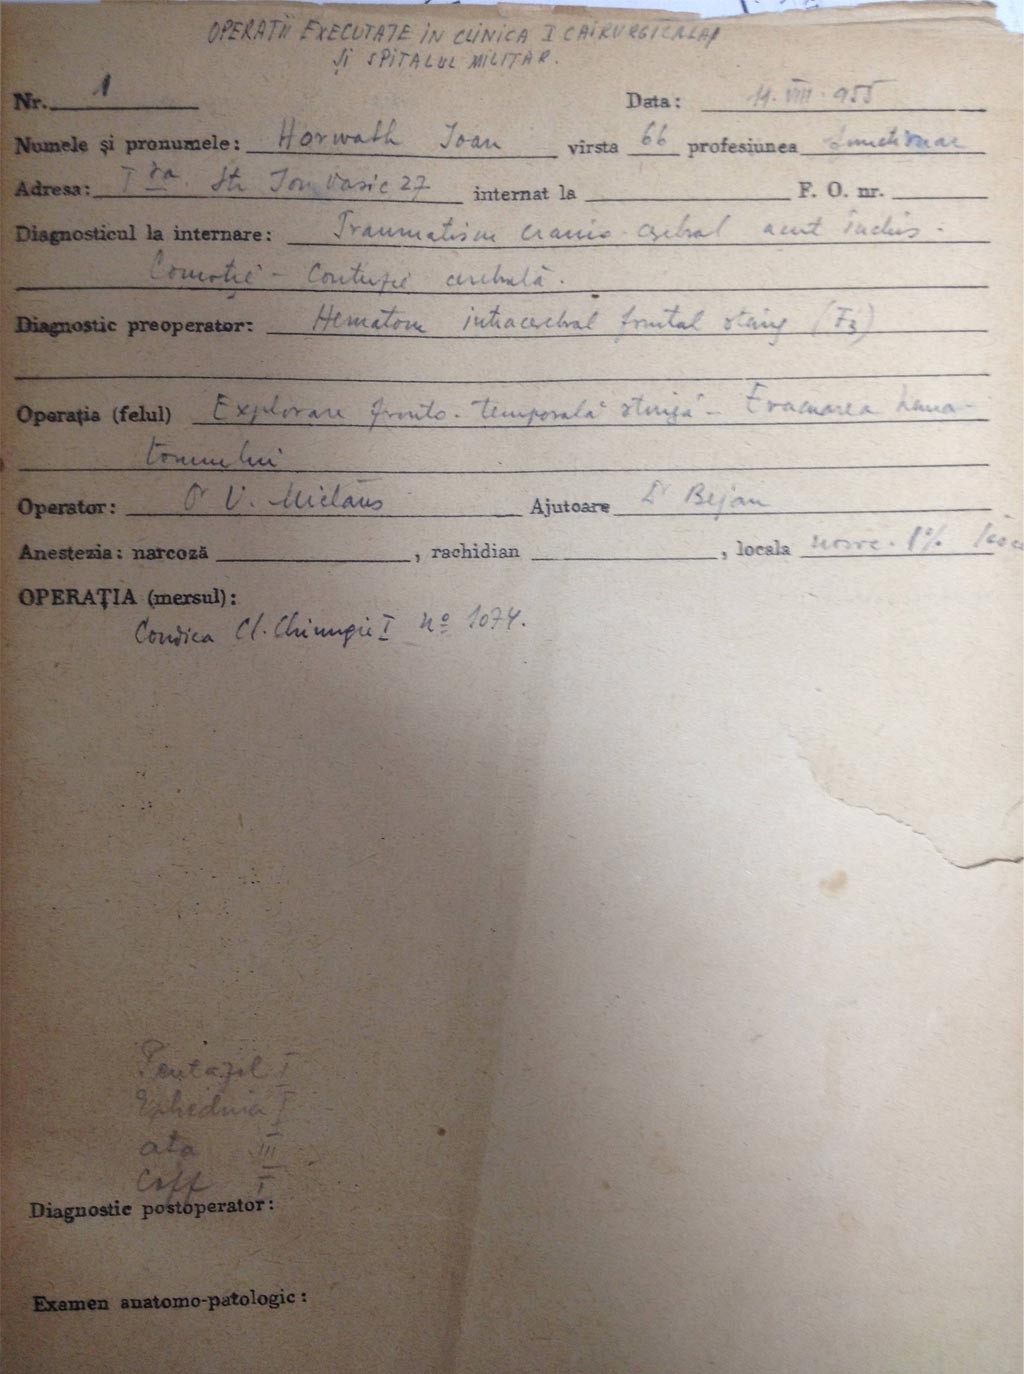 OPERAȚII EXECUTATE IN CLINICA I CHIRURGICALĂ
ȘI SPITALUL MILITAR.
Nr. 1 Data: 11. VIII. 955
Numele și pronumele: Horwath Ioan virsta 66 profesiunea functionar
Adresa: T ra. Str Ion Vasic 27 internat la F. O. nr.
Diagnosticul la internare: Traumatism cranio-cerebral acut inchis -
Comoție - Contuzie cerebală.
Diagnostic preoperator: Hematom intracerebral frontal sting (F3)
Operația (felul) Explorare fronto-temporală stingă - Evacuarea hema-
tomului
Operator: Dr V. Miclăus Ajutoare Dr Bejan
Anestezia: narcoză , rachidian , locala novoc. 1%
OPERAȚIA (mersul):
Condica Cl. Chirurgie I No 1074.
Pentazil I
Ephedrina I
ata III
Coff I
Diagnostic postoperator:
Examen anatomo-patologic: